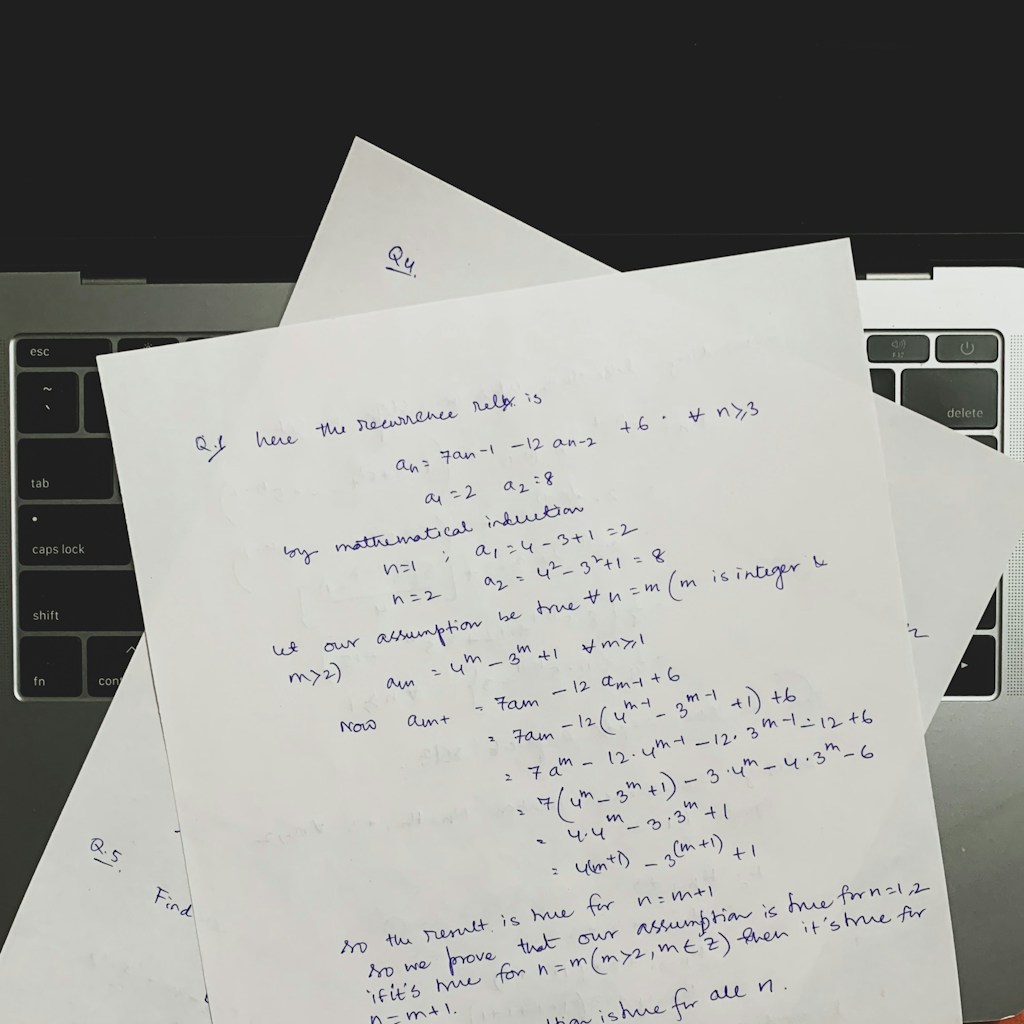 Q4.
esc
~
`
tab
caps lock
shift
fn
F12
delete
Q.1 here the recurrence is
an = 7an-1 - 12 an-2 + 6 . ∀ n≥3
a1 = 2 a2 = 8
by mathematical induction
n=1 ; a1 = 4 - 3 + 1 = 2
n=2 a2 = 4² - 3² + 1 = 8
let our assumption be true ∀ n = m (m is integer &
m>2) am = 4^m - 3^m + 1 ∀ m≥1
Now am+ = 7am - 12 am-1 + 6
= 7am - 12(4^m-1 - 3^m-1 + 1) + 6
= 7a^m - 12·4^m-1 - 12·3^m-1 - 12 + 6
= 7(4^m - 3^m + 1) - 3·4^m - 4·3^m - 6
= 4·4^m - 3·3^m + 1
= 4(m+1) - 3^(m+1) + 1
so the result is true for n = m+1
so we prove that our assumption is true for n=1,2
if it's true for n = m (m>2, m∈Z) then it's true for
n = m+1.
is true for all n.
Q.5
Find
2